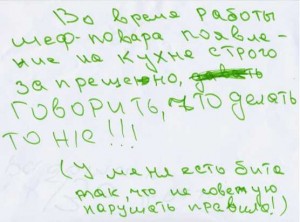 Во время работы
шеф-повара появле-
ние на кухне строго
запрещенно,
говорить, что делать
то же!!!
(У меня есть бита
так, что не советую
нарушать правило!)